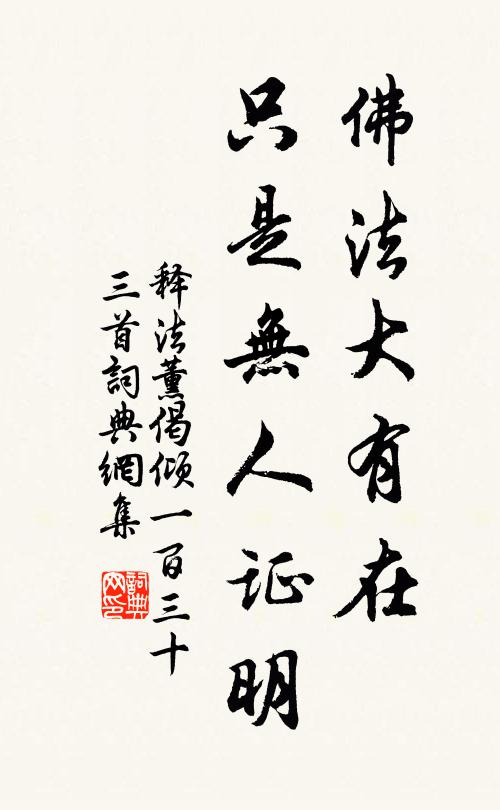 佛法大有在
只是無人证明
释法薰偈倾一百三十
三首詞典網集
詞典
网印